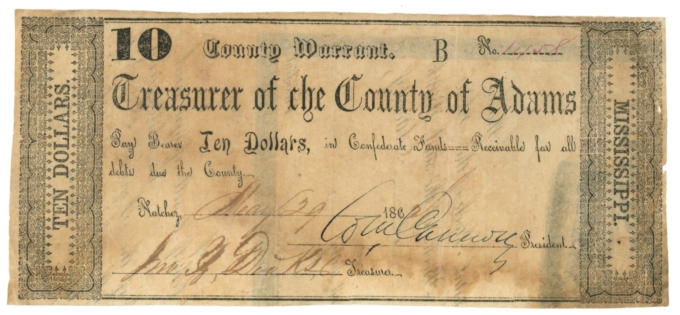 10 County Warrant. B No.
Treasurer of the County of Adams
Pay Bearer Ten Dollars, in Confederate Funds Receivable for all
debts due the County.
Natchez, May 29 186
President.
Treasurer.
TEN DOLLARS.
MISSISSIPPI.